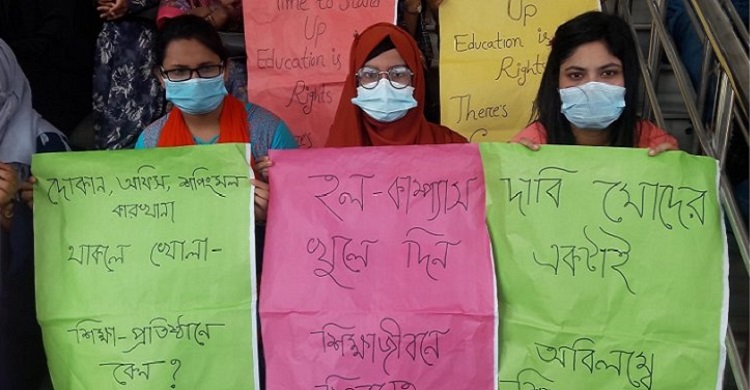 Time to Stand
Up
Education is
Rights
Up
Education is
Rights
There's
দোকান, অফিস, শপিংমল
কারখানা
থাকলে খোলা-
শিক্ষা-প্রতিষ্ঠানে
কেন?
হল-ক্যাম্পাস
খুলে দিন
শিক্ষাজীবনে
দাবি মোদের
একটাই
অবিলম্বে